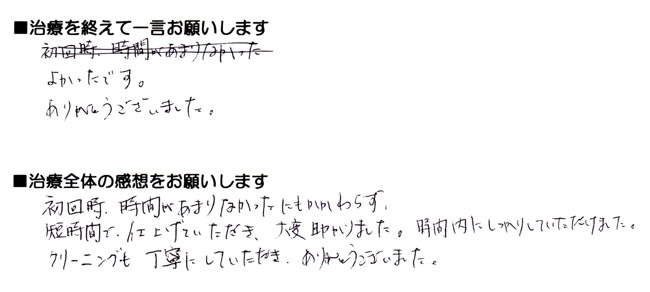 ■治療を終えて一言お願いします
初回時、時間があまりなかった
よかったです。
ありがとうございました。
■治療全体の感想をお願いします
初回時、時間があまりなかったにもかかわらず、
短時間で、仕上げていただき、大変助かりました。時間内にしっかりしていただけました。
クリーニングも丁寧にしていただき、ありがとうございました。